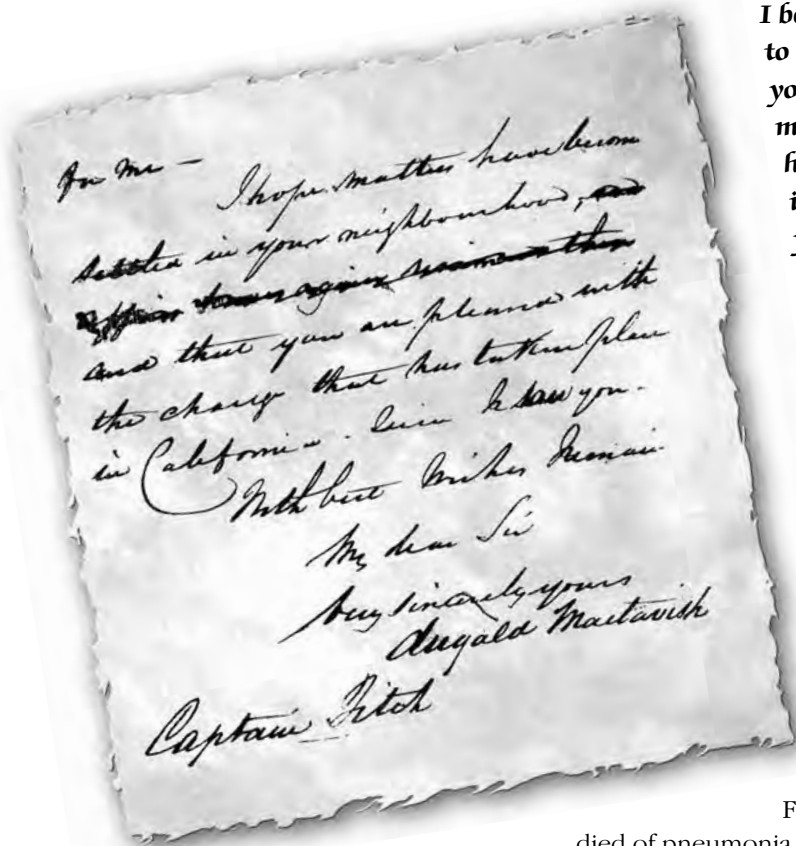 for me —
I hope matters have become
settled in your neighbourhood,
and that you are pleased with
the change that has taken place
in California. Since I saw you.
With best Wishes Remain
My dear Sir
Very Sincerely yours
Dugald Mactavish
Captain Fitch
I b
to
yo
m
h
i
F
died of pneumonia